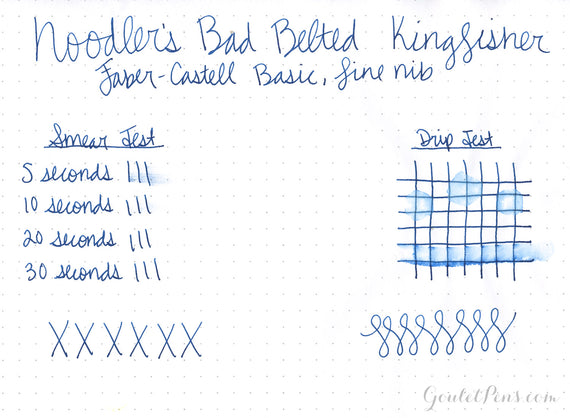 Noodler's Bad Belted Kingfisher
Faber-Castell Basic, fine nib
Smear Test
5 seconds |||
10 seconds |||
20 seconds |||
30 seconds |||
Drip Test
XXXXXX
GouletPens.com